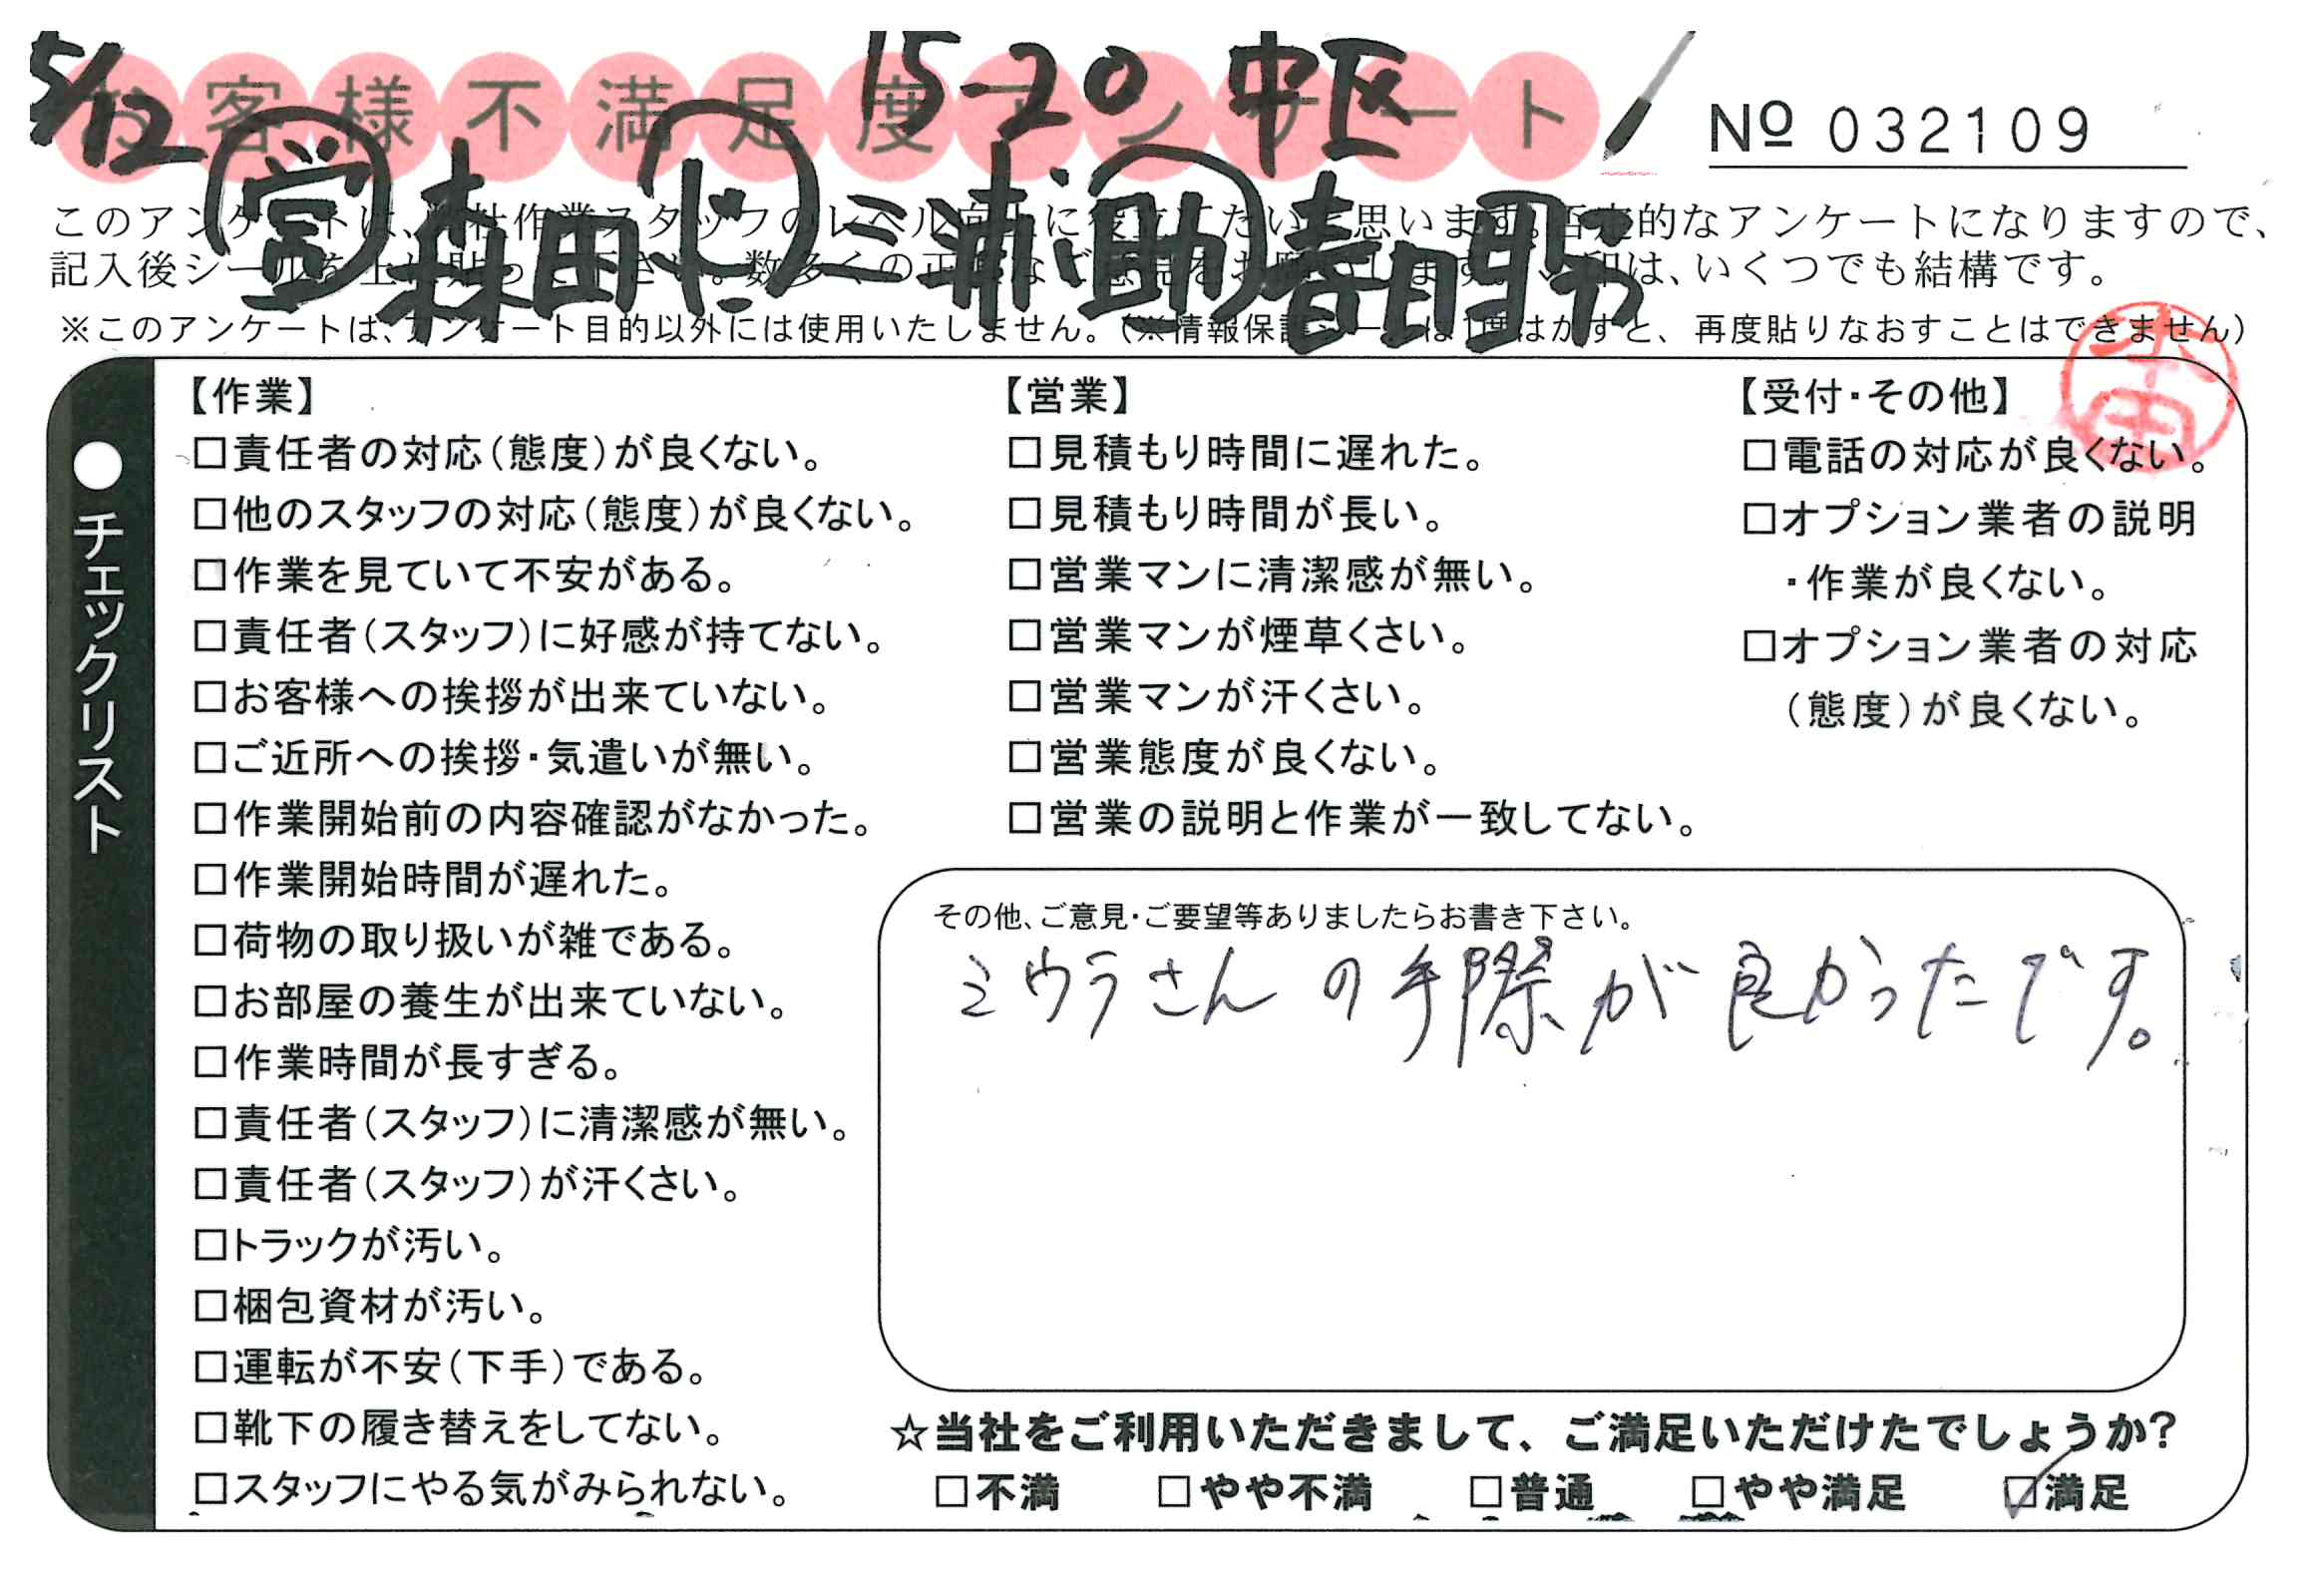 5/12 15-20 中区
お客様不満足度アンケート
№ 032109
営 森田 ド 三浦 助 春日野
このアンケートは、 社作業スタッフのレベル向上に役立てたいと思います。否定的なアンケートになりますので、
記入後シールを上に貼って下さい。数多くの正直なご意見をお願いします。レ印は、いくつでも結構です。
※このアンケートは、アンケート目的以外には使用いたしません。（※情報保護シールは1度はがすと、再度貼りなおすことはできません）
●チェックリスト
【作業】
□責任者の対応（態度）が良くない。
□他のスタッフの対応（態度）が良くない。
□作業を見ていて不安がある。
□責任者（スタッフ）に好感が持てない。
□お客様への挨拶が出来ていない。
□ご近所への挨拶・気遣いが無い。
□作業開始前の内容確認がなかった。
□作業開始時間が遅れた。
□荷物の取り扱いが雑である。
□お部屋の養生が出来ていない。
□作業時間が長すぎる。
□責任者（スタッフ）に清潔感が無い。
□責任者（スタッフ）が汗くさい。
□トラックが汚い。
□梱包資材が汚い。
□運転が不安（下手）である。
□靴下の履き替えをしてない。
□スタッフにやる気がみられない。
【営業】
□見積もり時間に遅れた。
□見積もり時間が長い。
□営業マンに清潔感が無い。
□営業マンが煙草くさい。
□営業マンが汗くさい。
□営業態度が良くない。
□営業の説明と作業が一致してない。
【受付・その他】
□電話の対応が良くない。
□オプション業者の説明
・作業が良くない。
□オプション業者の対応
（態度）が良くない。
その他、ご意見・ご要望等ありましたらお書き下さい。
ミウラさんの手際が良かったです。
☆当社をご利用いただきまして、ご満足いただけたでしょうか?
□不満 □やや不満 □普通 □やや満足 ☑満足